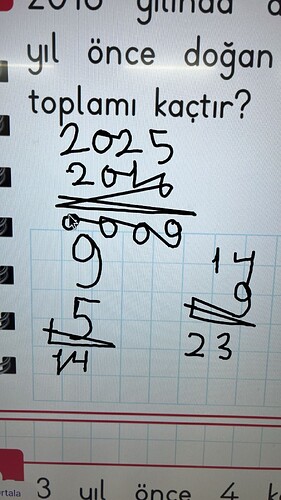 2016 yılında
yıl önce doğan
toplamı kaçtır?
2025
2016
0009
9
5
14
14
9
23
3 yıl önce 4